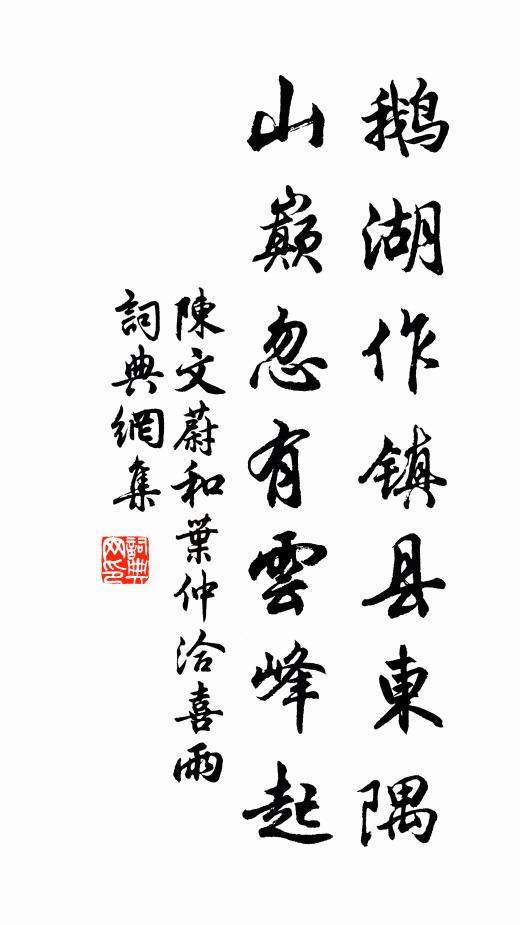 鹅湖作镇县東隅
山巔忽有雲峰起
陳文蔚和葉仲洽喜雨
詞典網集
詞典网印